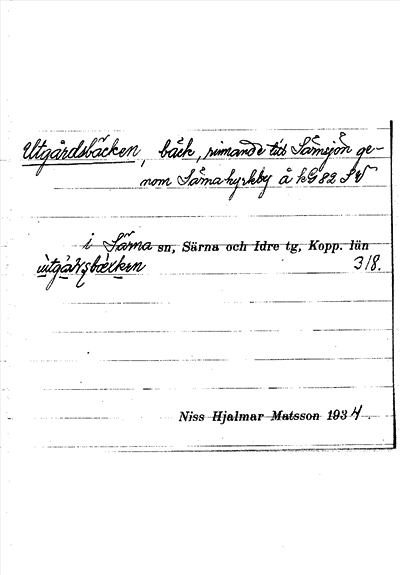 Utgårdsbäcken, bäck, rinnande till Särnsjön ge-
nom Särna kyrkby å kG 82 SV
i Särna sn, Särna och Idre tg, Kopp. län
318.
Niss Hjalmar Matsson 1934.